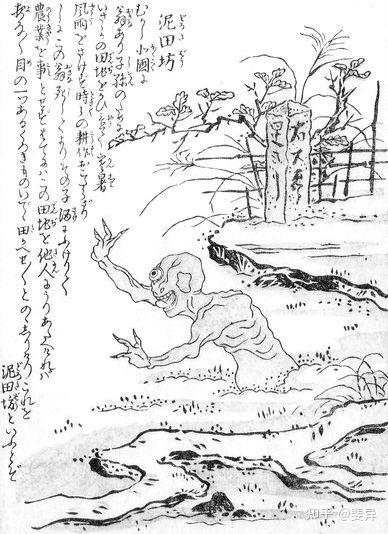 泥田坊
むかし北國に
翁あり子孫のために
いさゝかの田地をかひ置て寒暑
風雨をさけず時々の耕作おこたらざり
しにこの翁死してよりその子酒にふけりて
農業を事とせずはてにはこの田地を他人にうりあたへければ
夜な〳〵目の一つあるくろきものいでゝ田かへせ〳〵とのゝしりけりこれを
泥田坊といふとぞ
知乎 @斐异